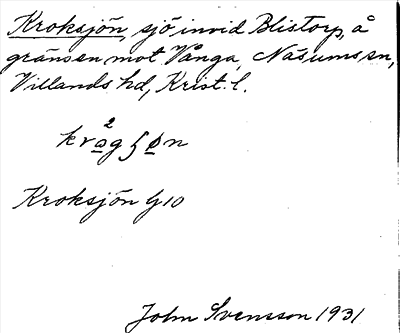 Kroksjön, sjö invid Blistorp, å
gränsen mot Vånga, Näsums sn,
Villands hd, Krist. l.
2
kragʃøn
Kroksjön G10
John Svensson 1931